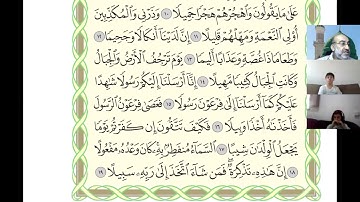 عَلَىٰ مَا يَقُولُونَ وَٱهْجُرْهُمْ هَجْرًا جَمِيلًا ١٠ وَذَرْنِى وَٱلْمُكَذِّبِينَ
أُو۟لِى ٱلنَّعْمَةِ وَمَهِّلْهُمْ قَلِيلًا ١١ إِنَّ لَدَيْنَآ أَنكَالًا وَجَحِيمًا ١٢
وَطَعَامًا ذَا غُصَّةٍ وَعَذَابًا أَلِيمًا ١٣ يَوْمَ تَرْجُفُ ٱلْأَرْضُ وَٱلْجِبَالُ
وَكَانَتِ ٱلْجِبَالُ كَثِيبًا مَّهِيلًا ١٤ إِنَّآ أَرْسَلْنَآ إِلَيْكُمْ رَسُولًا شَـٰهِدًا
عَلَيْكُمْ كَمَآ أَرْسَلْنَآ إِلَىٰ فِرْعَوْنَ رَسُولًا ١٥ فَعَصَىٰ فِرْعَوْنُ ٱلرَّسُولَ
فَأَخَذْنَـٰهُ أَخْذًا وَبِيلًا ١٦ فَكَيْفَ تَتَّقُونَ إِن كَفَرْتُمْ يَوْمًا
يَجْعَلُ ٱلْوِلْدَٰنَ شِيبًا ١٧ ٱلسَّمَآءُ مُنفَطِرٌۢ بِهِۦ ۚ كَانَ وَعْدُهُۥ مَفْعُولًا
١٨ إِنَّ هَـٰذِهِۦ تَذْكِرَةٌ ۖ فَمَن شَآءَ ٱتَّخَذَ إِلَىٰ رَبِّهِۦ سَبِيلًا ١٩